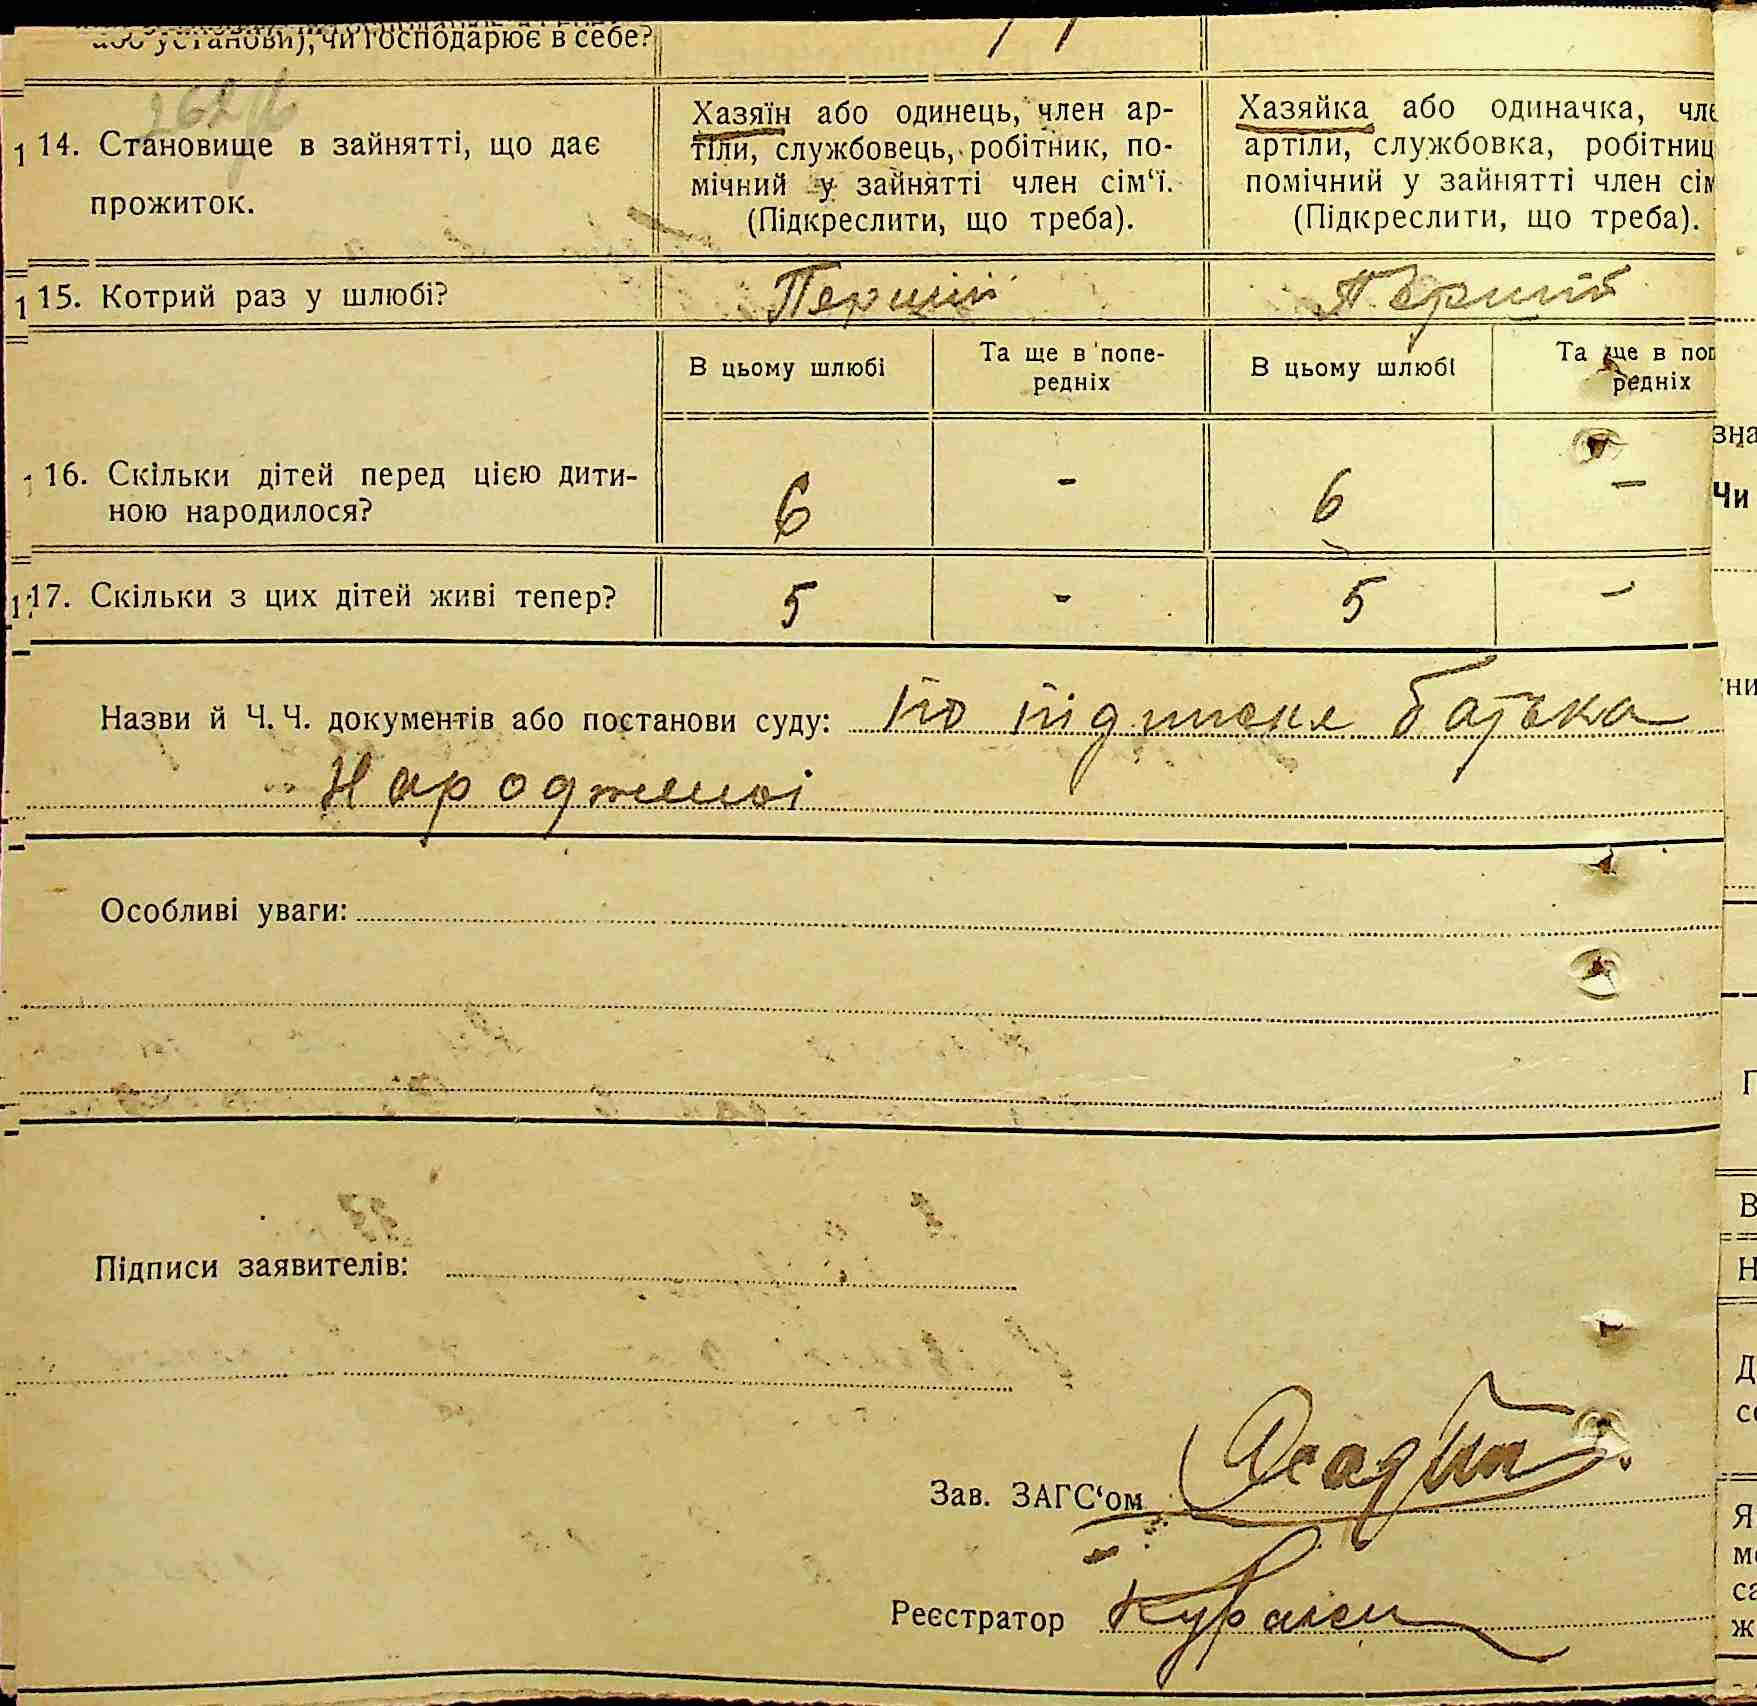 або установи), чи господарює в себе?
14. Становище в зайнятті, що дає
прожиток.
Хазяїн або одинець, член ар-
тіли, службовець, робітник, по-
мічний у зайнятті член сім‘ї.
(Підкреслити, що треба).
Хазяйка або одиначка, чле
артіли, службовка, робітниц
помічний у зайнятті член сім
(Підкреслити, що треба).
15. Котрий раз у шлюбі?
Перший
Перший
В цьому шлюбі
Та ще в попе-
редніх
В цьому шлюбі
Та ще в поп
редніх
16. Скільки дітей перед цією дити-
ною народилося?
6
-
6
-
17. Скільки з цих дітей живі тепер?
5
-
5
-
Назви й Ч. Ч. документів або постанови суду: по підписке батька
Народженоі
Особливі уваги:
Підписи заявителів:
Зав. ЗАГС‘ом
Реєстратор
зна
Чи
ни
П
В
Н
Д
се
Я
ме
са
ж